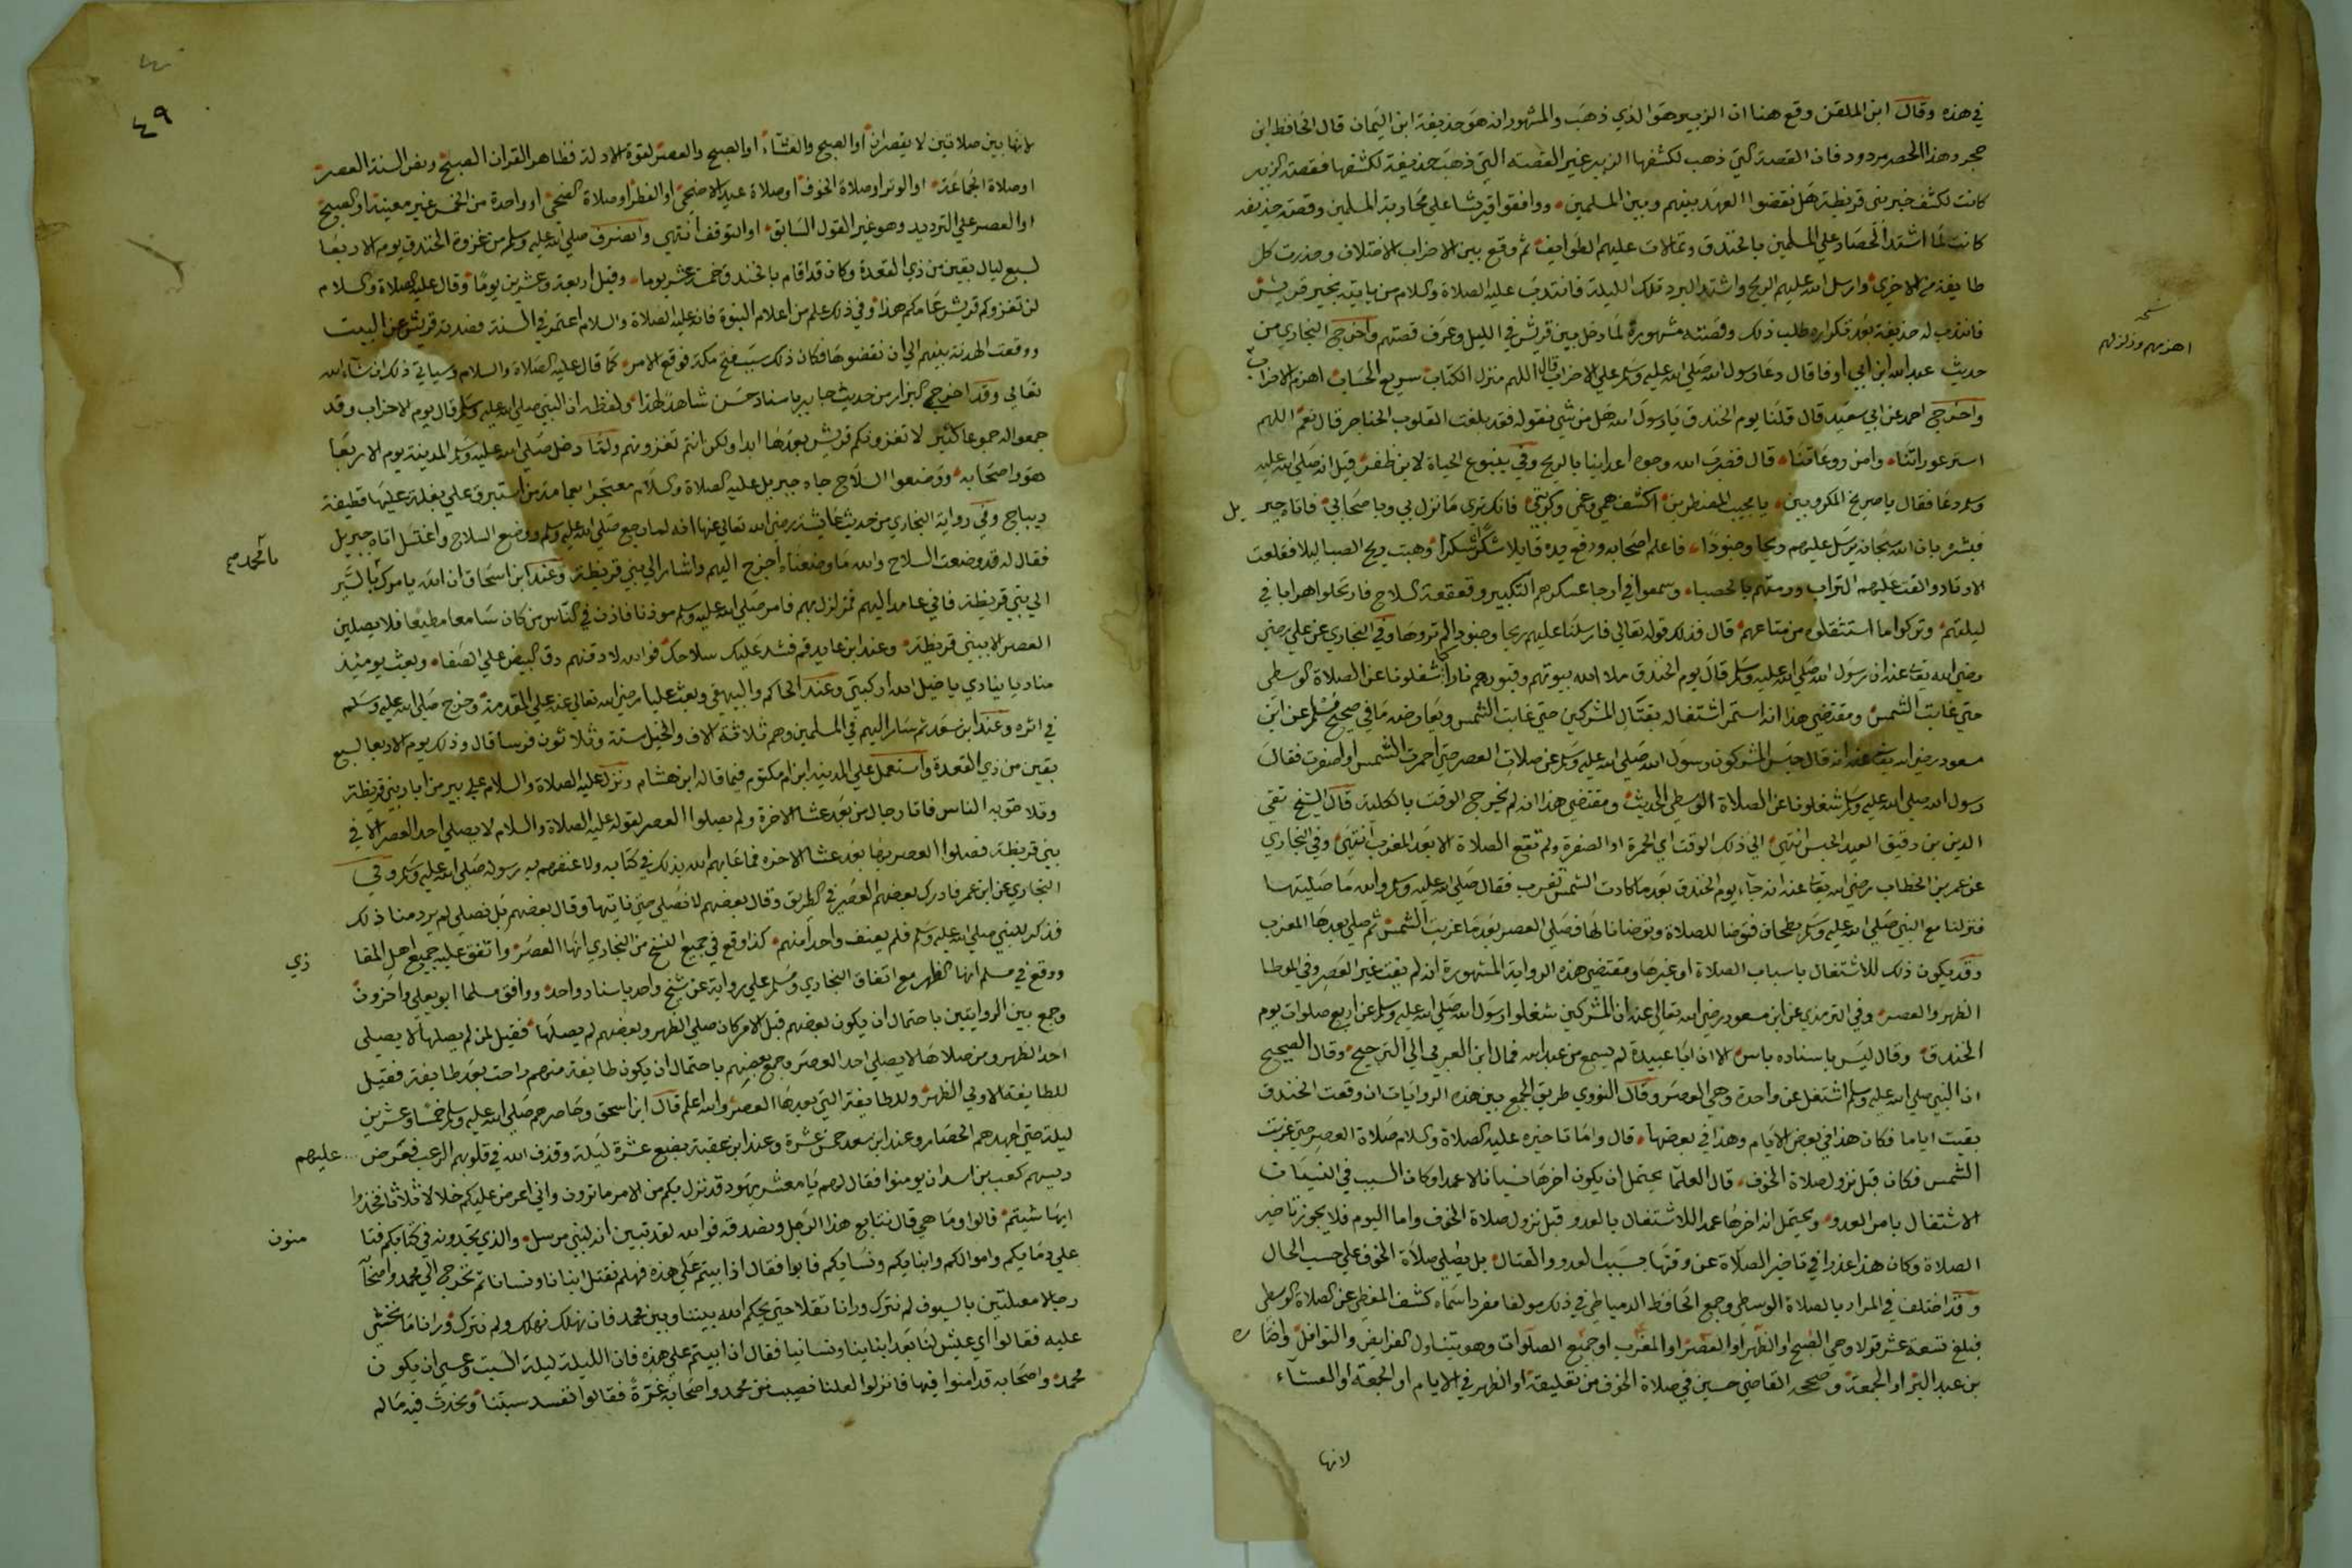 في هذه وقال ابن الملقن وقع هنا ان الزبير هو الذي ذهب والمشهور انه هو حذيفة ابن اليمان قال الحافظ ابن
حجر وهذا الحصر مردود فان القصة التي ذهب لكشفها الزبير غير القصه التي ذهب حذيفة لكشفها فقصة الزبير
كانت لكشف خبر بني قريظة هل نقضوا العهد بينهم وبين المسلمين ووافقوا قريشا على محاربة المسلمين وقصة حذيفه
كانت لما اشتد الحصار علي المسلمين بالخندق وتمالات عليهم الطوايف ثم وقع بين الاحزاب الاختلاف وحذرت كل
طايفة من الاخري وارسل الله عليهم الريح واشتد البرد تلك الليلة فانتدب عليه الصلاة والسلام من ياتيه بخبر قريش
فانتدب له حذيفة بعد تكراره طلب ذلك وقصته مشهورة لما دخل بين قريش في الليل وعرف قصتهم واخرج البخاري من
حديث عبد الله ابن ابي اوفا قال دعا رسول الله صلى الله عليه وسلم علي الاحزاب قال اللهم منزل الكتاب سريع الحساب اهزم الاحزاب
نسخه
اهزمهم وزلزلهم
واخرج احمد عن ابي سعيد قال قلنا يوم الخندق يا رسول الله هل من شي نقوله فقد بلغت القلوب الحناجر قال نعم اللهم
استر عوراتنا وامن روعاتنا قال فضرب الله وجوه اعداينا بالريح وفي ينبوع الحياة لابن ظفر قيل انه صلى الله عليه
وسلم دعا فقال يا صريخ المكروبين يا مجيب المضطرين اكشف همي وغمي وكربتي فانك تري ما نزل بي وباصحابي فاتاه جبر يل
فبشره بان الله سبحانه يرسل عليهم ريحا وجنودا فاعلم اصحابه ورفع يده قايلا شكرا شكرا وهبت ريح الصبا ليلا فقلعت
الاوتاد والقت عليهم التراب ورمتهم بالحصباء وسمعوا في ارجا عسكرهم التكبير وقعقعة السلاح فارتحلوا هرابا في
ليلتهم وتركوا ما استثقلوه من متاعهم قال فذلك قوله تعالي فارسلنا عليهم ريحا وجنودا لم تروها وفي البخاري عن علي رضي
رضي الله تعا عنه ان رسول الله صلى الله عليه وسلم قال يوم الخندق ملا الله بيوتهم وقبورهم نارا كما شغلونا عن الصلاة الوسطى
حتي غابت الشمس ومقتضي هذا انه استمر اشتغاله بقتال المشركين حتي غابت الشمس ويعارضه ما في صحيح مسلم عن ابن
مسعود رضي الله تعا عنه انه قال حبس المشركون رسول الله صلى الله عليه وسلم عن صلات العصر حتي احمرت الشمس او اصفرت فقال
رسول الله صلى الله عليه وسلم شغلونا عن الصلاة الوسطي الحديث ومقتضي هذا انه لم يخرج الوقت بالكلية قال الشيخ تقي
الدين بن دقيق العيد الحبس انتهي الي ذلك الوقت اي الحمرة او الصفرة ولم تقع الصلاة الا بعد المغرب انتهي وفي البخاري
عن عمر بن الخطاب رضي الله تعا عنه انه جاء يوم الخندق بعد ما كادت الشمس تغرب فقال صلى الله عليه وسلم والله ما صليتها
فنزلنا مع النبي صلى الله عليه وسلم بطحان فتوضا للصلاة وتوضانا لها فصلي العصر بعد ما غربت الشمس ثم صلي بعدها المغرب
وقد يكون ذلك للاشتغال باسباب الصلاة او غيرها ومقتضي هذه الرواية المشهورة انه لم يفت غير العصر وفي الموطا
الظهر والعصر وفي الترمذي عن ابن مسعود رضي الله تعالي عنه ان المشركين شغلوا رسول الله صلى الله عليه وسلم عن اربع صلوات يوم
الخندق وقال ليس باسناده باس الا ان ابا عبيدة لم يسمع من عبد الله فمال ابن العربي الي الترجيح وقال الصحيح
ان النبي صلى الله عليه وسلم اشتغل عن واحدة وهي العصر وقال النووي طريق الجمع بين هذه الروايات ان وقعت الخندق
بقيت اياما فكان هذا في بعض الايام وهذا في بعضها قال واما تاخيره عليه الصلاة والسلام صلاة العصر حتي غربت
الشمس فكان قبل نزول صلاة الخوف قال العلما يحتمل ان يكون اخرها نسيانا لا عمدا وكان السبب في النسيان
الاشتغال بامر العدو ويحتمل انه اخرها عمدا للاشتغال بالعدو قبل نزول صلاة الخوف واما اليوم فلا يجوز تاخير
الصلاة وكان هذا عذرا في تاخير الصلاة عن وقتها بسبب العدو والقتال بل يصلي صلاة الخوف علي حسب الحال
وقد اختلف في المراد بالصلاة الوسطي وجمع الحافظ الدمياطي في ذلك مولفا مفردا سماه كشف المغطي عن الصلاة الوسطي
فبلغ تسعة عشر قولا وهي الصبح او الظهر او العصر او المغرب او جميع الصلوات وهو يتناول الفرايض والنوافل
بن عبد البر او الجمعة وصححه القاضي حسين في صلاة الخوف من تعليقه او الظهر في الايام او الجمعة او العشاء
لانها
٤٩
لانها بين صلاتين لا يقصران او الصبح والعشاء او الصبح والعصر لقوة الادلة فظاهر القران الصبح ونص السنة العصر
او صلاة الجماعة او الوتر او صلاة الخوف او صلاة عيد الاضحي او الفطر او صلاة الضحي او واحدة من الخمس غير معينة او الصبح
او العصر علي الترديد وهو غير القول السابق او التوقف انتهي وانصرف صلى الله عليه وسلم من غزوة الخندق يوم الاربعا
لسبع ليال بقين من ذي القعدة وكان قد اقام بالخندق خمسة عشر يوما وقيل اربعة وعشرين يوما وقال عليه الصلاة والسلام
لن تغزوكم قريش عامكم هذا وفي ذلك علم من اعلام النبوة فانه عليه الصلاة والسلام اعتمر في السنة فصدته قريش عن البيت
ووقعت الهدنة بينهم الي ان نقضوها فكان ذلك سبب فتح مكة فوقع الامر كما قال عليه الصلاة والسلام وسياتي ذلك ان شاء الله
تعالي وقد اخرج البزار من حديث جابر باسناد حسن شاهدا لهذا ولفظه ان النبي صلى الله عليه وسلم قال يوم الاحزاب وقد
جمعوا له جموعا كثيرة لا تغزونكم قريش بعدها ابدا ولكن انتم تغزونهم ولما دخل صلى الله عليه وسلم المدينة يوم الاربعا
هو واصحابه ووضعوا السلاح جاه جبريل عليه الصلاة والسلام معتجرا بعمامة من استبرق علي بغلة عليها قطيفة
ديباج وفي رواية البخاري من حديث عائشة رضي الله تعالي عنها انه لما رجع صلى الله عليه وسلم ووضع السلاح واغتسل اتاه جبريل
فقال له قد وضعت السلاح والله ما وضعناه اخرج اليهم واشار الي بني قريظة وعند ابن اسحاق ان الله يامرك بالسير
يا محمد صح
الي بني قريظة فاني عامد اليهم فمزلزل بهم فامر صلى الله عليه وسلم موذنا فاذن في الناس من كان سامعا مطيعا فلا يصلين
العصر الا ببني قريظة وعند ابن عايد قم فشد عليك سلاحك فوالله لادقنهم دق البيض علي الصفا وبعث يوميذ
مناديا ينادي يا خيل الله اركبي وعند الحاكم والبيهقي وبعث عليا رضي الله تعالي عنه علي المقدمة وخرج صلى الله عليه وسلم
في اثره وعند ابن سعد ثم سار اليهم في المسلمين وهم ثلاثة الاف والخيل ستة وثلاثون فرسا قال وذلك يوم الاربعا لسبع
بقين من ذي القعدة واستعمل علي المدينة ابن ام مكتوم فيما قاله ابن هشام ونزل عليه الصلاة والسلام علي بير من ابار بني قريظة
وتلاحق به الناس فاتا رجال من بعد عشا الاخرة ولم يصلوا العصر لقوله عليه الصلاة والسلام لا يصلي احد العصر الا في
بني قريظة فصلوا العصر بها بعد عشا الاخره فما عابهم الله بذلك في كتابه ولا عنفهم به رسوله صلى الله عليه وسلم وفي
البخاري عن ابن عمر فادرك بعضهم العصر في الطريق وقال بعضهم لا نصلي حتي ناتيها وقال بعضهم بل نصلي لم يرد منا ذلك
فذكر للنبي صلى الله عليه وسلم فلم يعنف واحدا منهم كذا وقع في جميع النسخ من البخاري انها العصر واتفق عليه جميع اهل المغا زي
ووقع في مسلم انها الظهر مع اتفاق البخاري ومسلم علي رواية عن شيخ واحد باسناد واحد ووافق مسلما ابو يعلي واخرون
وجمع بين الروايتين باحتمال ان يكون بعضهم قبل الامر كان صلي الظهر وبعضهم لم يصلها فقيل لمن لم يصلها لا يصلي
احد الظهر ومن صلاها لا يصلي احد العصر وجمع بعضهم باحتمال ان يكون طايفة منهم راحت بعد طايفة فقيل
للطايفة الاولي الظهر وللطايفة التي بعدها العصر والله اعلم قال ابن اسحق وحاصرهم صلى الله عليه وسلم خمسا وعشرين
ليلة حتي اجهدهم الحصار وعند ابن سعد خمس عشرة وعند ابن عقبة بضع عشرة ليلة وقذف الله في قلوبهم الرعب فعرض عليهم
رييسهم كعب بن اسد ان يومنوا فقال لهم يا معشر يهود قد نزل بكم من الامر ما ترون واني اعرض عليكم خلالا ثلاثا فخذوا
ايها شيتم قالوا وما هي قال نتابع هذا الرجل ونصدقه فوالله لقد تبين انه لنبي مرسل والذي تجدونه في كتابكم فتا منون
علي دمايكم واموالكم وابنايكم ونسايكم فابوا فقال اذا بيتم علي هذه فهلم نقتل ابنانا ونسانا ثم نخرج الي محمد واصحا
رجالا مصلتين بالسيوف لم نترك ورانا ثقلا حتي يحكم الله بيننا وبين محمد فان نهلك نهلك ولم نترك ورانا ما نخشي
عليه فقالوا اي عيش لنا بعد ابناينا ونسانيا فقال ان ابيتم علي هذه فان الليلة ليلة السبت وعسي ان يكون
محمد واصحابه قد امنوا فيها فانزلوا لعلنا نصيب من محمد واصحابه غرة فقالوا نفسد سبتنا ونحدث فيه ما لم